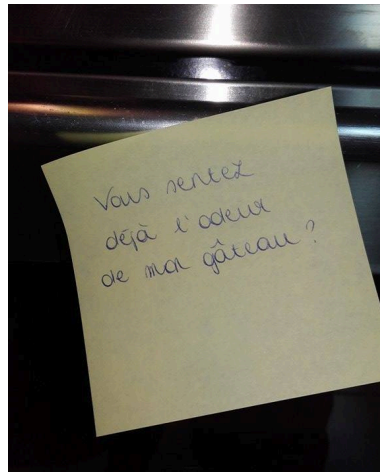 Vous sentez
déjà l'odeur
de mon gâteau ?